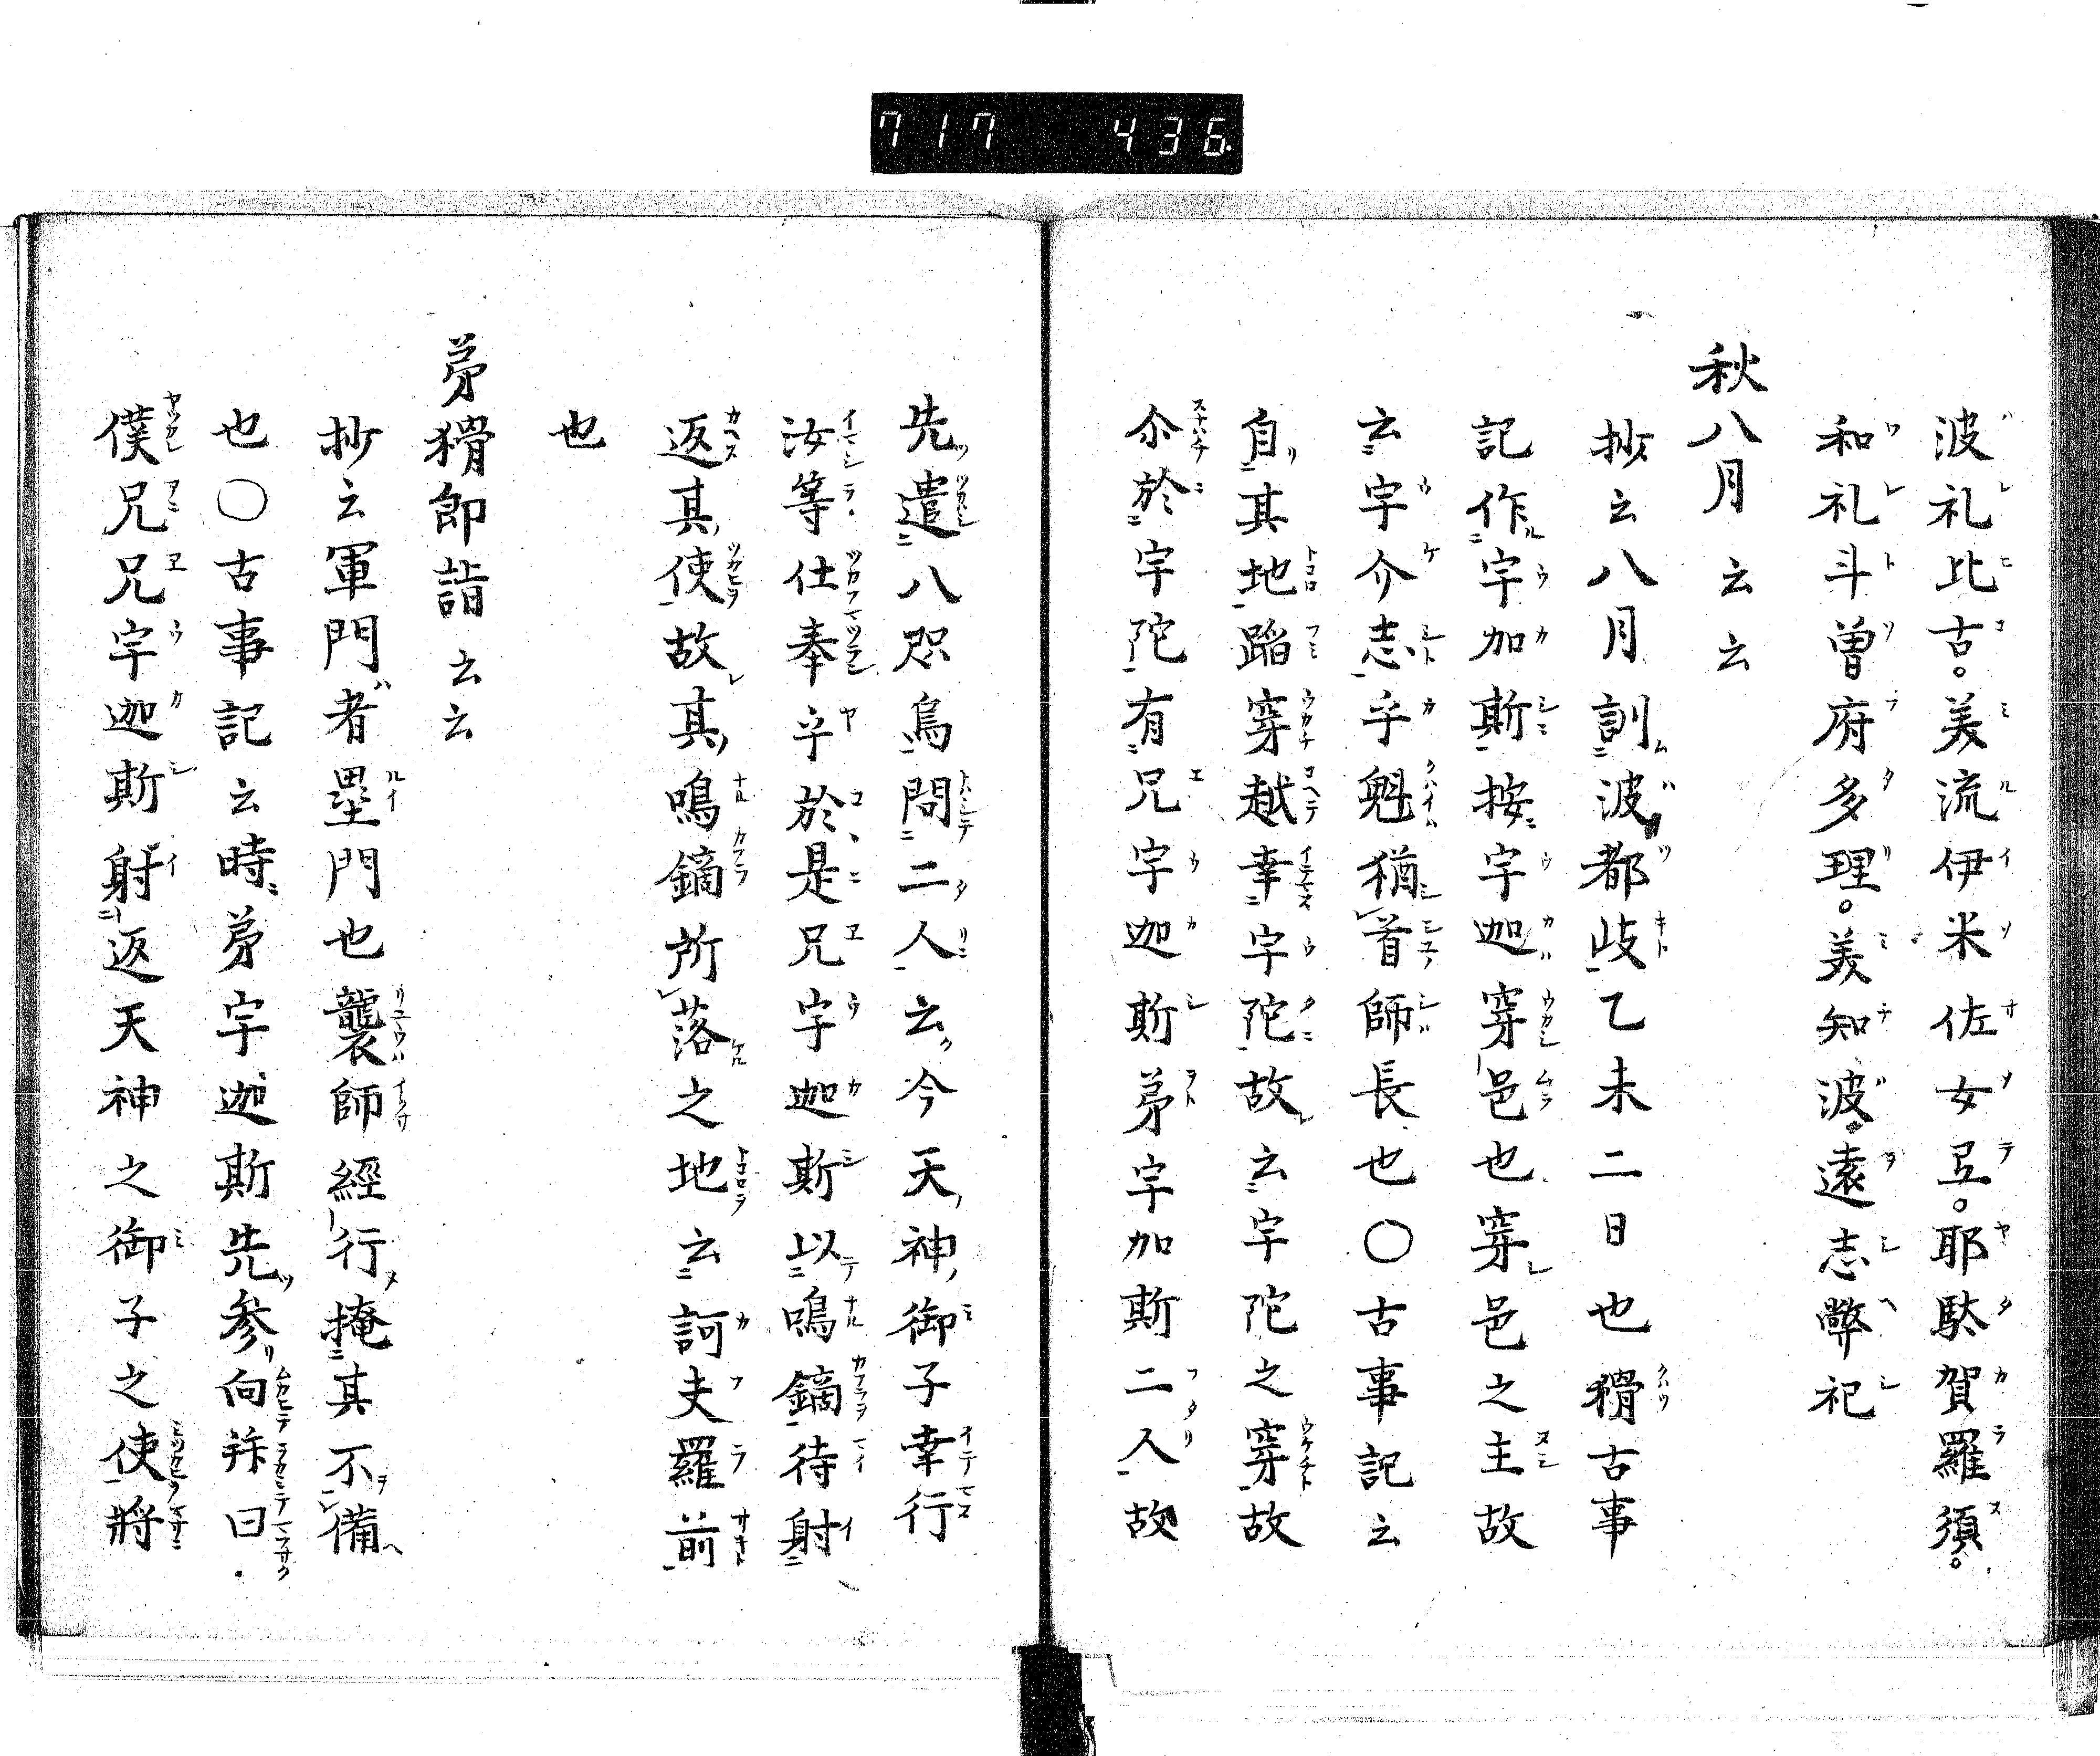 717 436
波礼比古。美流伊米佐女弖。耶駄賀羅須。
和礼斗曽府多理。美知波遠志弊祀
秋八月云云
抄云八月訓波都岐乙未二日也猾古事
記作宇加斯按宇迦穿邑也穿邑之主故
云宇介志乎魁猶首師長也〇古事記云
自其地蹈穿越幸宇陀故云宇陀之穿故
尒於宇陀有兄宇迦斯弟宇加斯二人故
先遣八咫烏問二人云今天神御子幸行
汝等仕奉乎於是兄宇迦斯以鳴鏑待射
返其使故其鳴鏑所落之地云訶夫羅前
也
弟猾即詣云云
抄云軍門者塁門也襲師經行掩其不備
也〇古事記云時弟宇迦斯先参向拜曰
僕兄兄宇迦斯射返天神之御子之使將